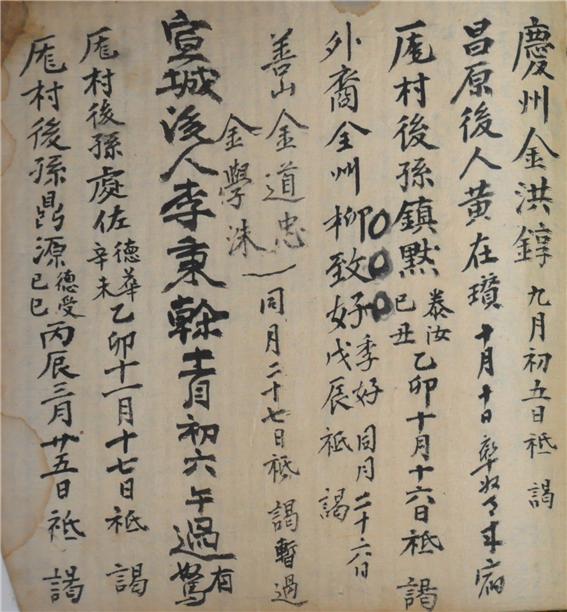 慶州金洪錞 九月初五日祗 謁
昌原後人黃在瓚 十月十日
厖村後孫鎮默 泰汝 己丑 乙卯十月十六日祗 謁
外裔全州柳致好 季好 戊辰 同月二十六日祗 謁
善山金道忠
金學洙 同月二十七日祗 謁暫過
宣城後人李秉幹 十一月初六午過 有駕
厖村後孫處佐 德華 辛未 乙卯十一月十七日祗 謁
厖村後孫鼎源 德受 己巳 丙辰三月廿五日祗 謁